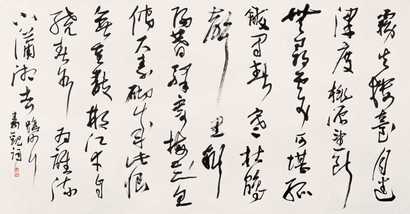 霧失樓臺月迷
津度桃源望斷
無尋處可堪孤
館閉春寒杜鵑
聲里斜
陽暮驛寄梅花魚
傳尺素砌成此恨
無重數郴江幸自
繞郴山為誰流
下瀟湘去 踏沙行
秦觀詞